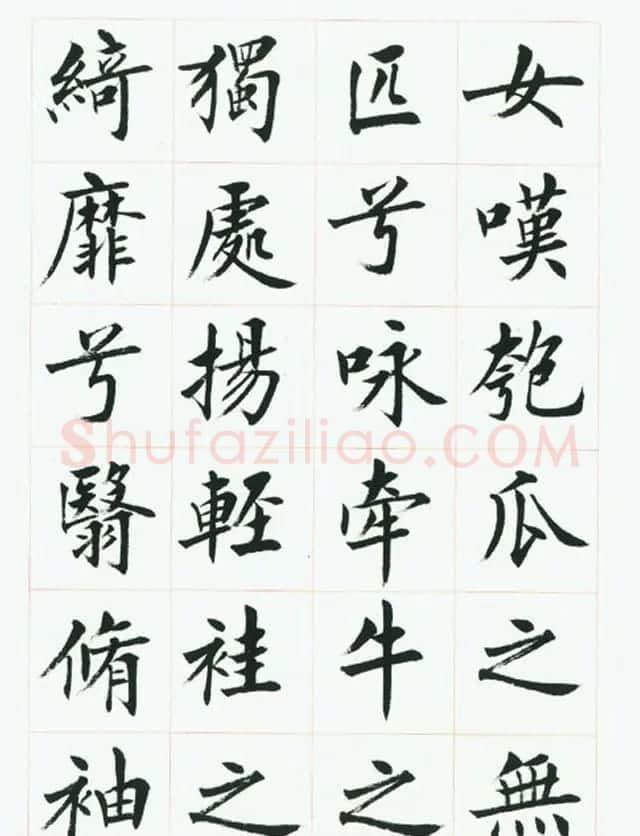 女嘆匏瓜之無
匹兮咏牽牛之
獨處揚輕袿之
綺靡兮翳脩袖
Shufaziliao.COM